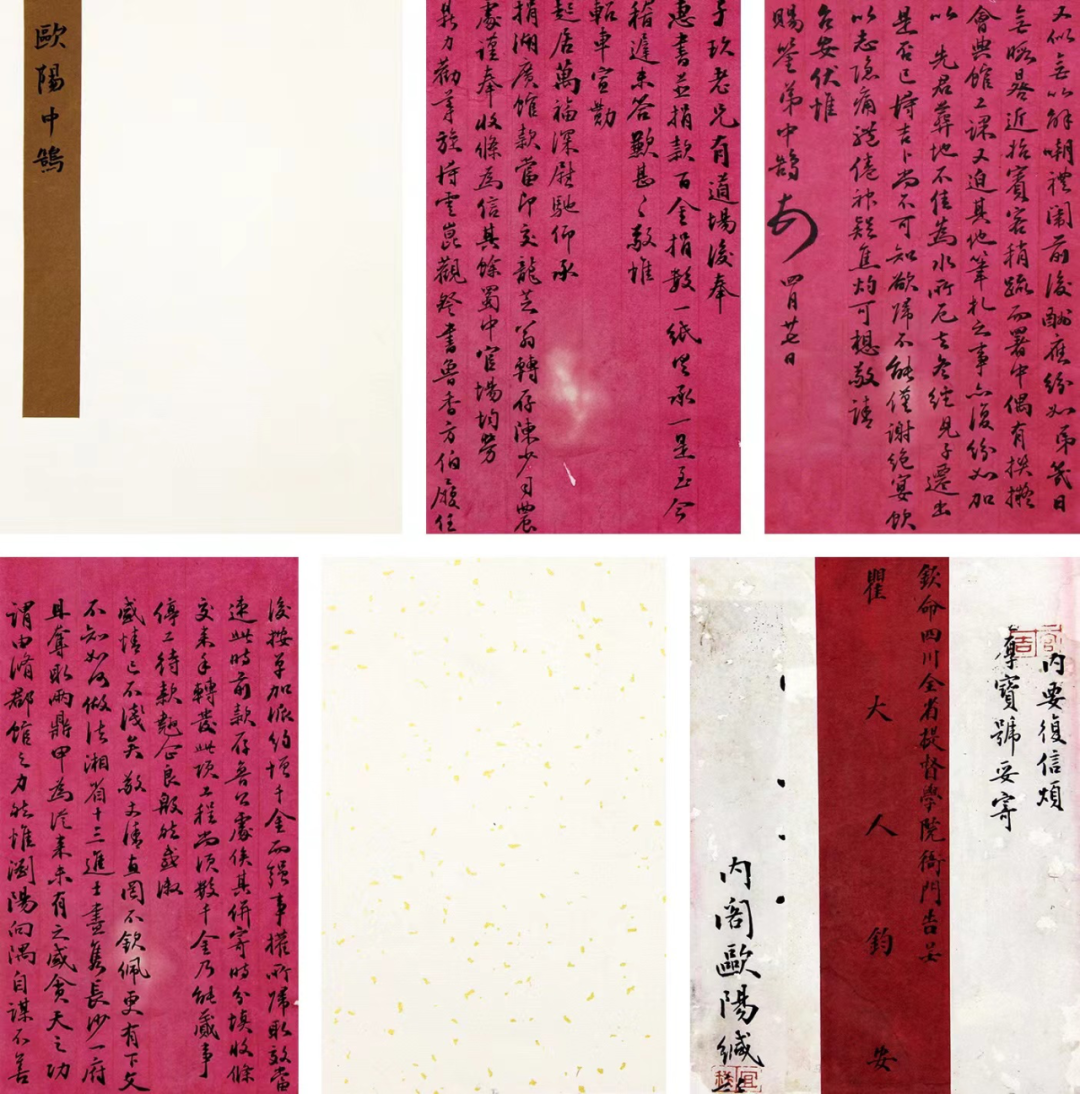 歐陽中鵠
子玖老兄有道場後奉
惠書並捐款百金捐啟一紙供承一是至今
稽遲未答歉甚〻敬惟
軺車宣勤
起居萬福深慰馳仰承
捐湖廣館款當即交龍芝翁轉存陳少司農
處謹奉收條為信其餘蜀中官場均勞
鼎力勸募旋得雲崑觀詧書魯香方伯履任
又似無以解嘲禮闈前後酬應紛如弟幾日
無暇晷近始賓客稍疏而署中偶有撰擬
會典館工課又迫其他筆札之事亦復紛如加
以 先君葬地不佳為水所厄去冬經兒子遷出
是否已得吉卜尚不可知欲歸不能僅謝絕宴飲
以志隱痛體倦神疑焦灼可想敬請
台安伏惟
賜鑒弟中鵠 四月廿七日
後按章加派約增千金而事權所歸取效當
速此時前款存魯公處俟其併寄時分填收條
交來手轉發此項工程尚須數千金乃能蕆事
停工待款翹企良殷然感激
盛情已不淺矣敬文清直罔不欽佩更有下文
不知如何做法湘省十三進士盡雋長沙一府
且奪取兩鼎甲為從來未有之盛貪天之功
謂由脩郡館之力然惟瀏陽向隅自謀不善
內要復信煩
尊寶號妥寄
欽命四川全省提督學院衙門告呈
瞿大人鈞安
內閣歐陽緘